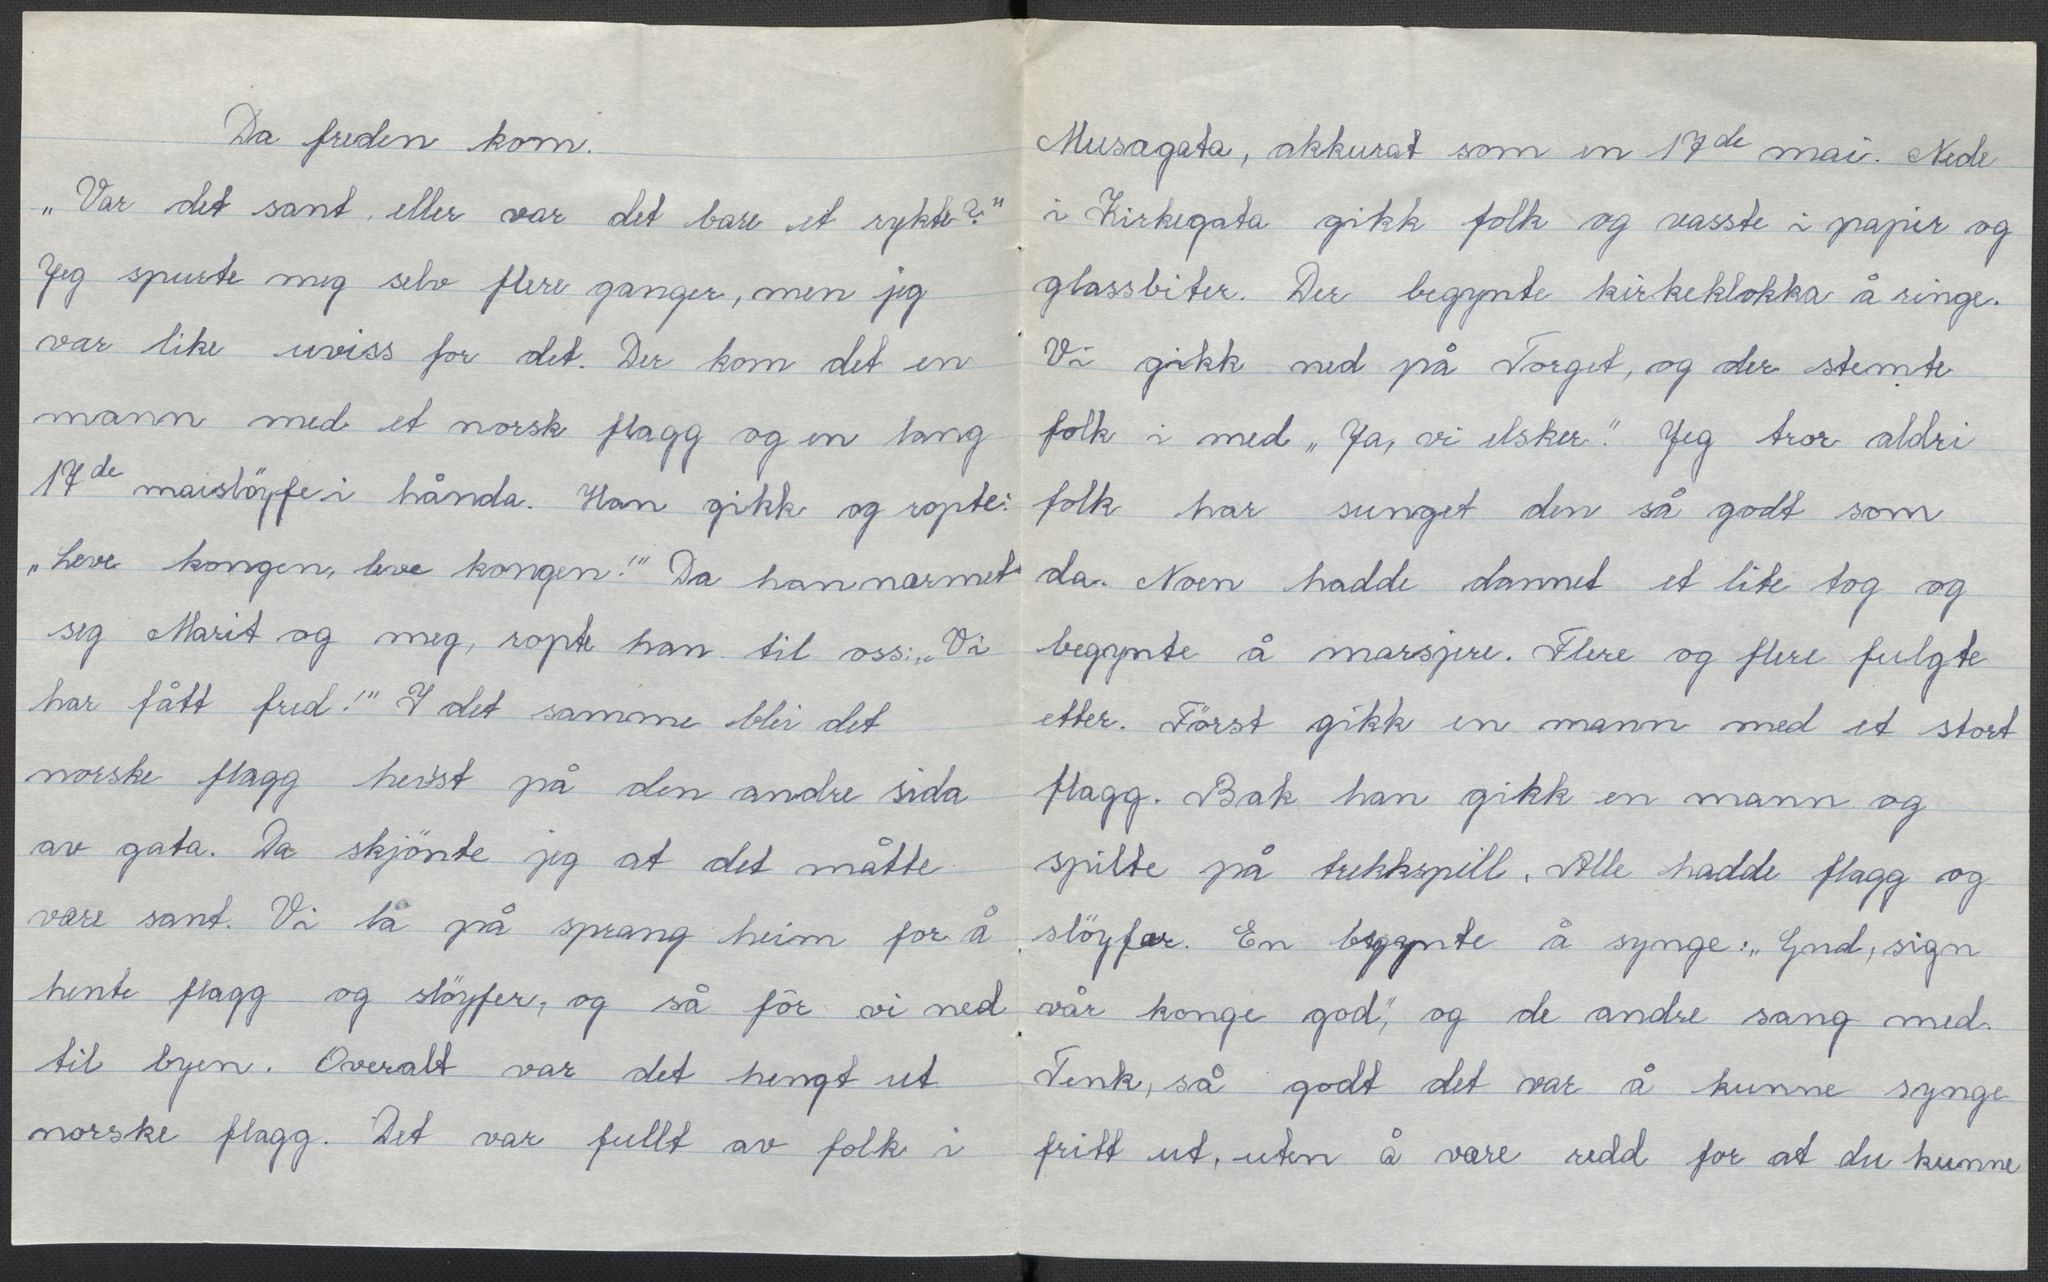 Da freden kom.
„Var det sant, eller var det bare et rykte?"
Jeg spurte meg selv flere ganger, men jeg
var like uviss for det. Der kom det en
mann med et norsk flagg og en lang
17de maislöyfe i hånda. Han gikk og ropte:
„Leve kongen, leve kongen!" Da han nærmet
seg Marit og meg, ropte han til oss: „Vi
har fått fred!" I det samme blei det
norske flagg heist på den andre sida
av gata. Da skjönte jeg at det måtte
være sant. Vi la på sprang heim for å
hente flagg og slöyfer, og så fór vi ned
til byen. Overalt var det hengt ut
norske flagg. Det var fullt av folk i
Musagata, akkurat som en 17de mai. Nede
i Kirkegata gikk folk og vasste i papir og
glassbiter. Der begynte kirkeklokka å ringe.
Vi gikk ned på Torget, og der stemte
folk i med „Ja, vi elsker". Jeg tror aldri
folk har sunget den så godt som
da. Noen hadde dannet et lite tog og
begynte å marsjere. Flere og flere fulgte
etter. Först gikk en mann med et stort
flagg. Bak han gikk en mann og
spilte på trekkspill. Alle hadde flagg og
slöyfer. En begynte å synge: „Gud, sign
vår konge god", og de andre sang med.
Tenk, så godt det var å kunne synge
fritt ut, uten å være redd for at du kunne